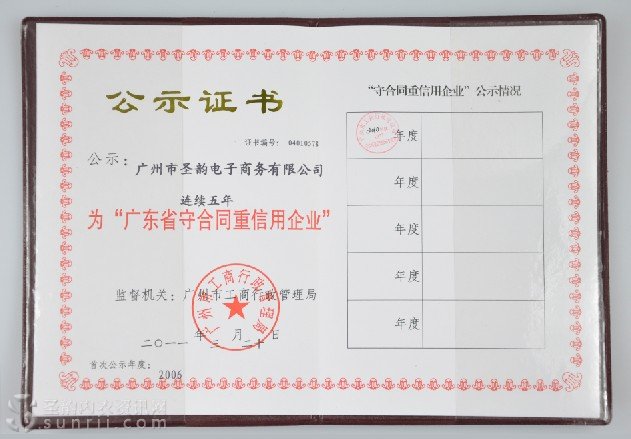 公示证书
证书编号： 04010578
公示：广州市圣韵电子商务有限公司
连续五年
为“广东省守合同重信用企业”
监督机关：广州市工商行政管理局
广州市工商行政管理局
二〇一一年二月二十日
首次公示年度：2006
“守合同重信用企业”公示情况
年度
年度
年度
年度
年度
sunrii.com